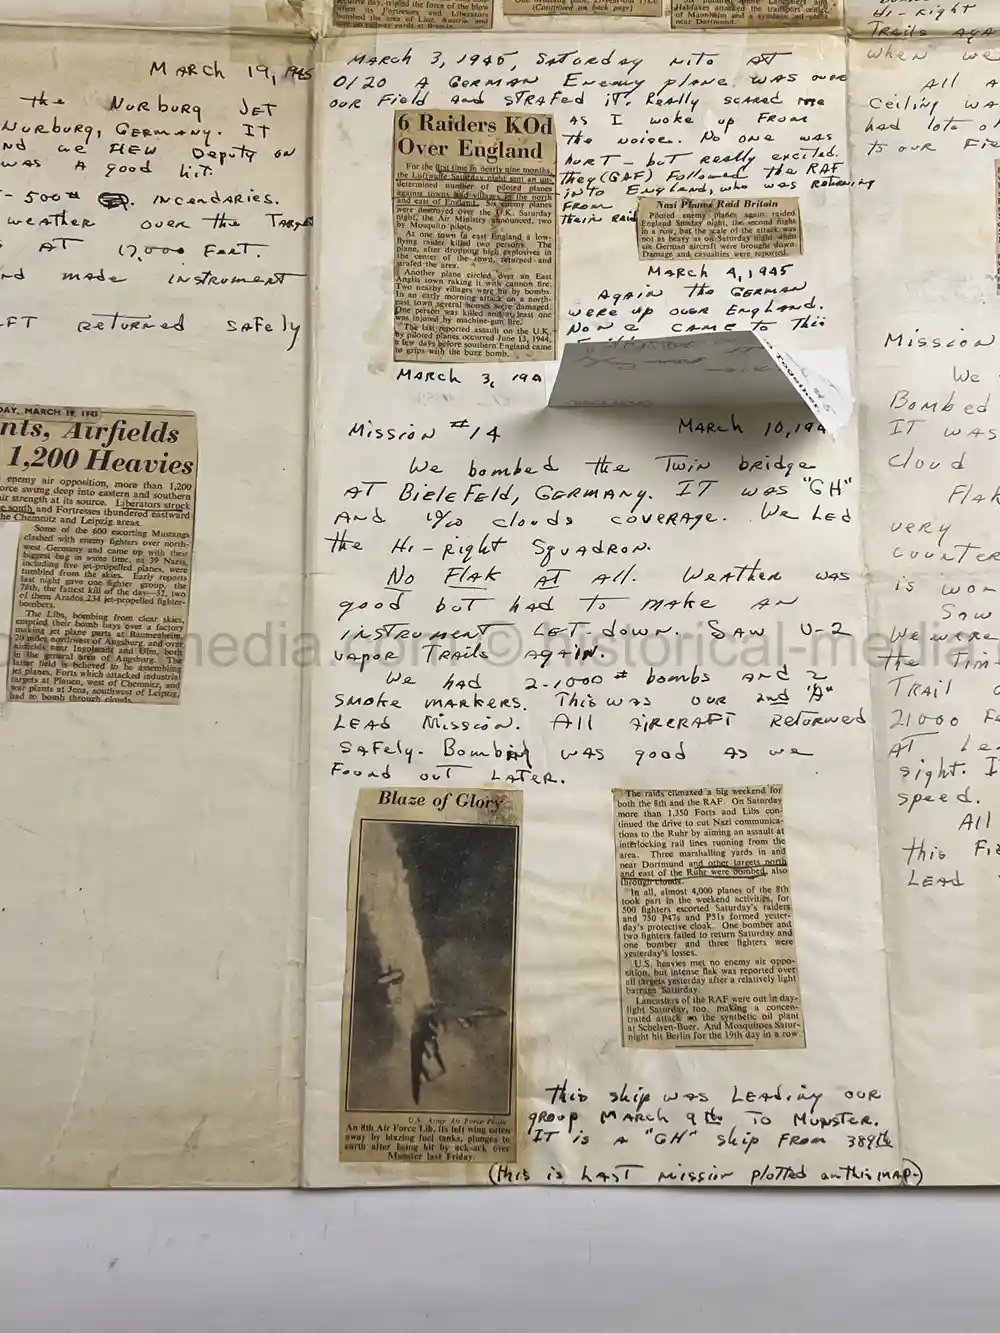 second day, tripled the force of the blow
when its Fortresses and Liberators
bombed the area of Linz, Austria, and
(Continued on back page)
Halifaxes attacked the transport center
of Mannheim and a synthetic oil plant
near Dortmund.
March 19, 1945
the Nurburg Jet
Nurburg, Germany. It
nd we flew Deputy on
was a good hit.
- 500# incendaries.
weather over the Target
AT 17,000 feet.
nd made instrument
FT returned safely
DAY, MARCH 19, 1945
nts, Airfields
1,200 Heavies
enemy air opposition, more than 1,200
orce swung deep into eastern and southern
air strength at its source. Liberators struck
e south and Fortresses thundered eastward
he Chemnitz and Leipzig areas.
Some of the 600 escorting Mustangs
clashed with enemy fighters over north-
west Germany and came up with their
biggest bag in some time, as 39 Nazis,
including five jet-propelled planes, were
tumbled from the skies. Early reports
last night gave one fighter group, the
78th, the fastest kill of the day—32, two
of them Arados 234 jet-propelled fighter-
bombers.
The Libs, bombing from clear skies,
emptied their bomb bays over a factory
making jet plane parts at Baumenheim,
20 miles northwest of Augsburg, and over
airfields near Ingolstadt and Ulm, both
in the general area of Augsburg. The
latter field is believed to be assembling
jet planes. Forts which attacked industrial
targets at Plauen, west of Chemnitz, and
war plants at Jena, southwest of Leipzig,
had to bomb through clouds.
March 3, 1945, Saturday nite at
0120 a German Enemy plane was over
our field and strafed it. Really scared me
as I woke up from
the noise. No one was
hurt - but really excited.
they (GAF) followed the RAF
into England, who was returning
from
their raid
6 Raiders KOd
Over England
For the first time in nearly nine months,
the Luftwaffe Saturday night sent an un-
determined number of piloted planes
against towns and villages in the north
and east of England. Six enemy planes
were destroyed over the U.K. Saturday
night, the Air Ministry announced, two
by Mosquito pilots.
At one town in east England a low-
flying raider killed two persons. The
plane, after dropping high explosives in
the center of the town, returned and
strafed the area.
Another plane circled over an East
Anglis town raking it with cannon fire.
Two nearby villages were hit by bombs.
In an early morning attack on a north-
east town several houses were damaged.
One person was killed and at least one
was injured by machine-gun fire.
The last reported assault on the U.K.
by piloted planes occurred June 13, 1944,
a few days before southern England came
to grips with the buzz bomb.
Nazi Planes Raid Britain
Piloted enemy planes again raided
England Sunday night, the second night
in a row, but the scale of the attack was
not as heavy as on Saturday night when
six German aircraft were brought down.
Damage and casualties were reported.
March 4, 1945
Again the German
were up over England.
None came to this
March 3, 194
Together
Mission #14 March 10, 194
We bombed the Twin bridge
at Bielefeld, Germany. It was "GH"
and 10/10 clouds coverage. We led
the Hi-right Squadron.
No Flak at all. Weather was
good but had to make an
instrument let-down. Saw V-2
vapor trails again.
We had 2-1000# bombs and 2
smoke markers. This was our 2nd "A"
lead mission. All aircraft returned
safely. Bombing was good as we
found out later.
Blaze of Glory
U.S. Army Air Force Photo
An 8th Air Force Lib, its left wing eaten
away by blazing fuel tanks, plunges to
earth after being hit by ack-ack over
Munster last Friday.
The raids climaxed a big weekend for
both the 8th and the RAF. On Saturday
more than 1,350 Forts and Libs con-
tinued the drive to cut Nazi communica-
tions to the Ruhr by aiming an assault at
interlocking rail lines running from the
area. Three marshalling yards in and
near Dortmund and other targets north
and east of the Ruhr were bombed, also
through clouds.
In all, almost 4,000 planes of the 8th
took part in the weekend activities, for
500 fighters escorted Saturday's raiders
and 750 P47s and P51s formed yester-
day's protective cloak. One bomber and
two fighters failed to return Saturday and
one bomber and three fighters were
yesterday's losses.
U.S. heavies met no enemy air oppo-
sition, but intense flak was reported over
all targets yesterday after a relatively light
barrage Saturday.
Lancasters of the RAF were out in day-
light Saturday, too, making a concen-
trated attack on the synthetic oil plant
at Scholven-Buer. And Mosquitoes Satur-
night hit Berlin for the 19th day in a row.
This ship was leading our
group March 9th to Munster.
It is a "GH" ship from 389th
(this is last mission plotted on this map)
Hi-right
Trails aga
when we
All a
ceiling wa
had lots of
to our Fie
Mission
We
Bombed
It was
cloud
Flak
very
counter
is won
Saw
We were
the time
Trail
21000 fe
at le
sight. I
speed.
All
this Fie
Lead
media.com © historical-media.